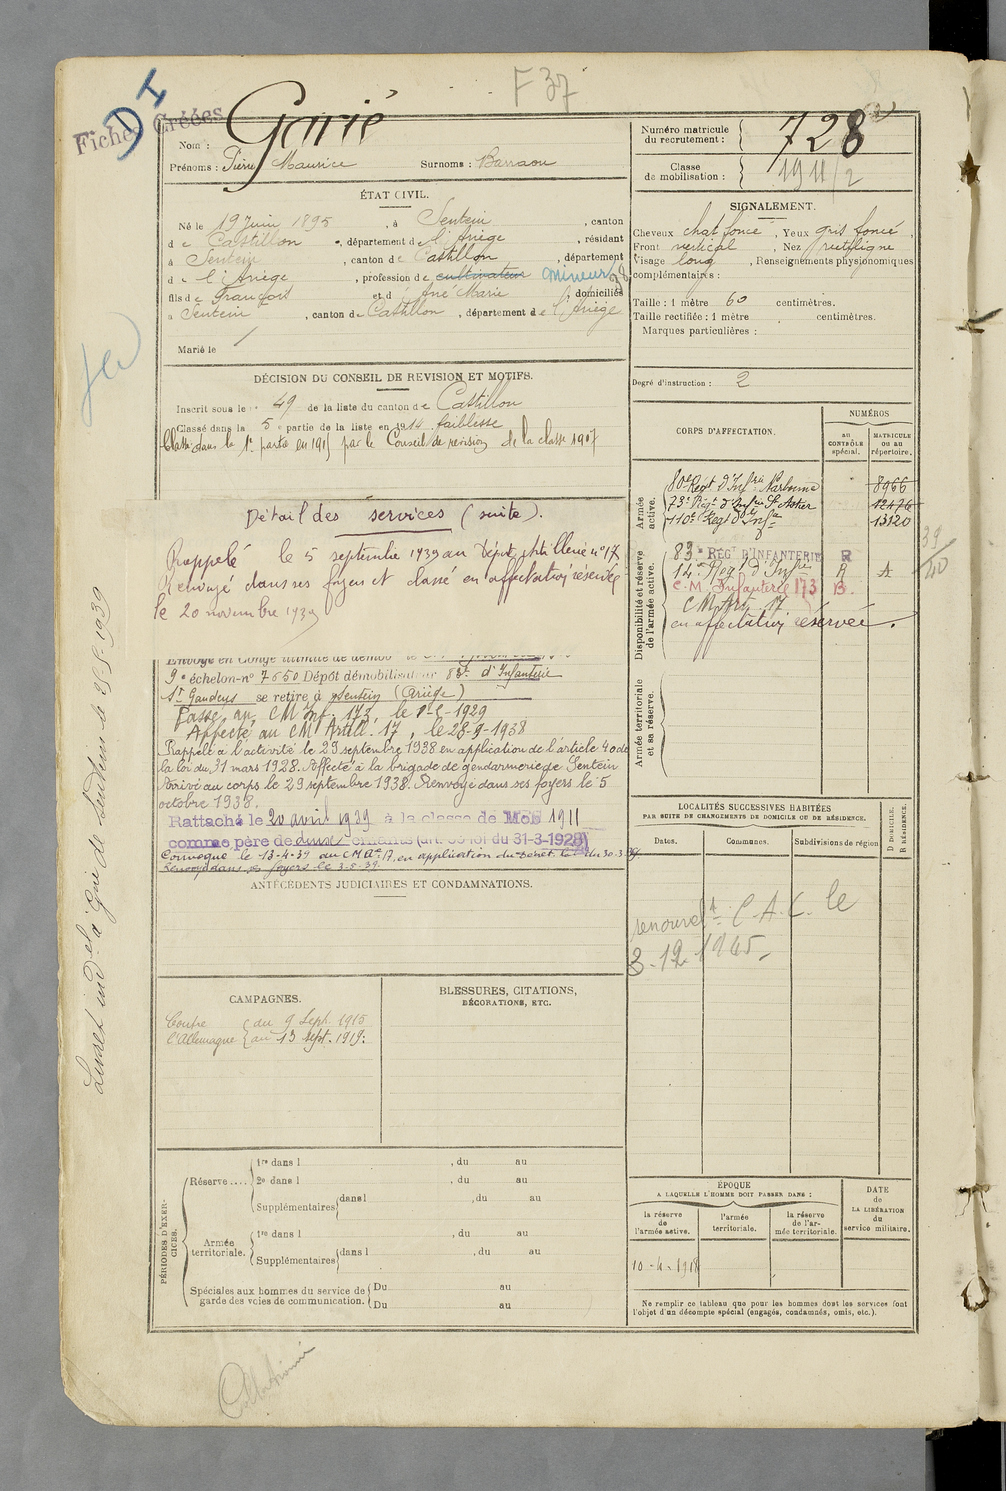 F 37
D I
Fiches Créées
Nom : Garié
Prénoms : Pierre Maurice Surnoms : Barraou
Numéro matricule
du recrutement : 728
Classe
de mobilisation : 1911/2
ÉTAT CIVIL.
Né le 19 Juin 1895, à Sentein, canton
de Castillon, département de l'Ariège, résidant
à Sentein, canton de Castillon, département
de l'Ariège, profession de cultivateur mineur
fils de François et de Marie, domiciliés
à Sentein, canton de Castillon, département de l'Ariège
Marié le
SIGNALEMENT.
Cheveux chat foncé, Yeux gris foncé,
Front vertical, Nez rectiligne
Visage long, Renseignements physionomiques
complémentaires :
Taille : 1 mètre 60 centimètres.
Taille rectifiée : 1 mètre centimètres.
Marques particulières :
Degré d'instruction : 2
DÉCISION DU CONSEIL DE REVISION ET MOTIFS.
Inscrit sous le n° 49 de la liste du canton de Castillon
Classé dans la 5e partie de la liste en 1914 faiblesse
Classé dans la 1e partie en 1915 par le Conseil de revision de la classe 1917
Détail des services (suite).
Rappelé le 5 septembre 1939 au Dépôt Artillerie n° 17
Renvoyé dans ses foyers et classé en affectation réservée
le 20 novembre 1939
Envoyé en congé illimité de démob
9e échelon n° 7650 Dépôt démobilisateur 83e d'Infanterie
St Gaudens se retire à Sentein (Ariège)
Passé au C M Inf. 173, le 1-6-1929
Affecté au CM Artill. 17, le 28-9-1938
Rappelé à l'activité le 29 septembre 1938 en application de l'article 40 de
la loi du 31 mars 1928. Affecté à la brigade de gendarmerie de Sentein
Arrivé au corps le 29 septembre 1938. Renvoyé dans ses foyers le 5
octobre 1938.
Rattaché le 20 avril 1929 à la classe de Mob 1911
comme père de deux enfants (art. 58 loi du 31-3-1928)
Convoqué le 13-4-39 au CM Art 17, en application du décret loi du 30.3.39
Renvoyé dans ses foyers le 3-8-39
ANTÉCÉDENTS JUDICIAIRES ET CONDAMNATIONS.
CAMPAGNES.
Contre l'Allemagne { du 9 Sept. 1915
au 13 sept. 1919.
BLESSURES, CITATIONS,
DÉCORATIONS, ETC.
CORPS D'AFFECTATION.
NUMÉROS
au
CONTRÔLE
spécial.
MATRICULE
ou au
répertoire.
Armée
active.
80e Régt d'Infrie Narbonne 8966
73e Régt d'Infie St Astier 12476
110e Régt d'Infie 13120
Disponibilité et réserve
de l'armée active.
83e RÉGt D'INFANTERIE R
14e Régt d'Infie R A
C.M. Infanterie 173 B.
CM Art 17
en affectation réservée.
39/40
Armée territoriale
et sa réserve.
LOCALITÉS SUCCESSIVES HABITÉES
PAR SUITE DE CHANGEMENTS DE DOMICILE OU DE RÉSIDENCE.
Dates.
Communes.
Subdivisions de région
D DOMICILE.
R RÉSIDENCE.
renouvelt C.A.C. le
3.12.1945.
PÉRIODES D'EXERCICES.
Réserve....
1re dans l , du au
2e dans l , du au
Supplémentaires dans l , du au
Armée
territoriale.
1re dans l , du au
Supplémentaires dans l , du au
Spéciales aux hommes du service de
garde des voies de communication.
Du au
Du au
ÉPOQUE
A LAQUELLE L'HOMME DOIT PASSER DANS :
la réserve
de
l'armée active.
l'armée
territoriale.
la réserve
de l'armée territoriale.
DATE
de
LA LIBÉRATION
du
service militaire.
10-4-1918
Ne remplir ce tableau que pour les hommes dont les services font
l'objet d'un décompte spécial (engagés, condamnés, omis, etc.).
Collationné